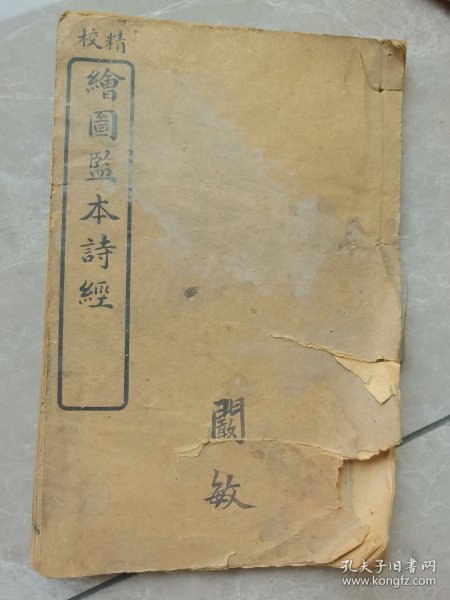 精校
繪圖監本詩經
闞敏
孔夫子旧书网
www.kongfz.com